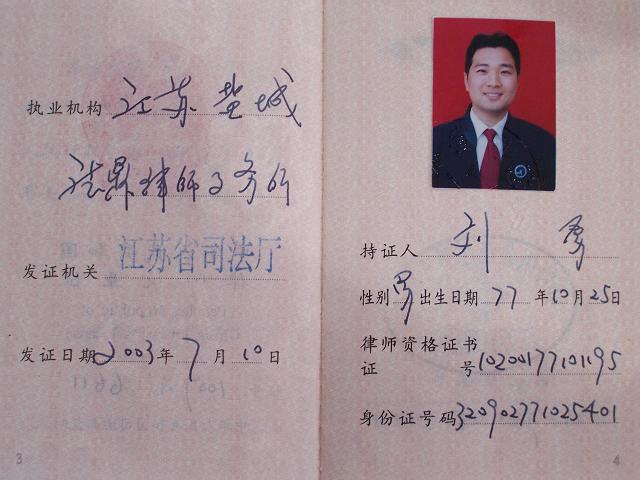 执业机构 江苏盐城
法鼎律师事务所
发证机关 江苏省司法厅
发证日期 2003年7月10日
3
持证人 刘勇
性别 男 出生日期 77年10月25日
律师资格证书
证号 10200177101195
身份证号码 320902771025401
4